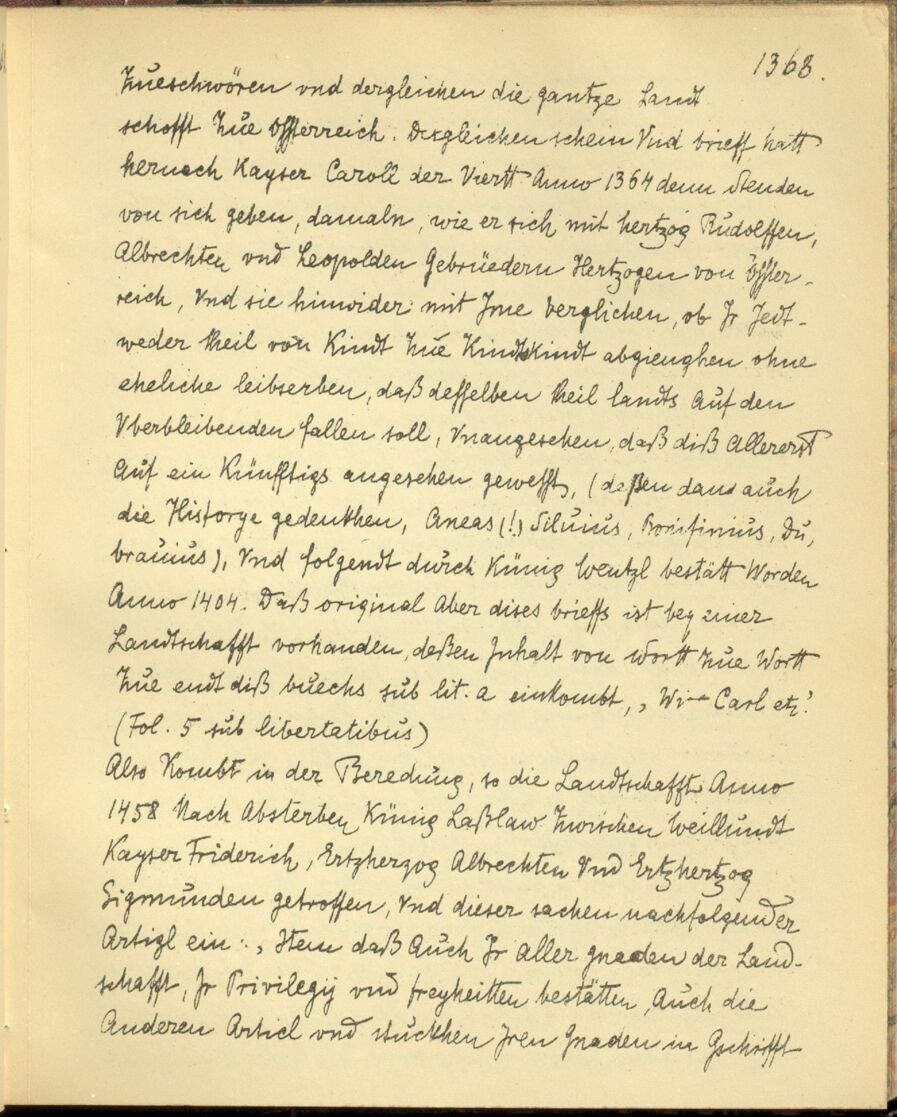 1368.
Zueschwören vnd dergleichen die gantze Landt
schofft Zue Össterreich. Dergleichen schein Vnd brieff hatt
hernoch Kayser Caroll der Viertt Anno 1364 denn Stenden
von sich geben, damaln, wie er sich mit hertzog Rudolffen,
Albrechten vnd Leopolden Gebrüedern Hertzogen von Össter-
reich, Vnd sie hinwider mit Jme verglichen, ob Jr Jedt-
weder theil von Kindt Zue Kindtskindt abgienghen ohne
eheliche leibserben, daß desselben theil landts Auf den
Vberbleibenden fallen soll, Vnangesehen, daß diß Allererst
Auf ein Künfftigs angesehen gewesst, (deßen dan auch
die Historye gedenkhen, Aneas (!) Siluius, Bonifinius, Du,
brauius), Vnd folgendt durch Künig Wentzl bestätt Worden
Anno 1404. Daß original Aber dises brieffs ist bey einer
Landtschafft vorhanden, deßen Jnhalt von Wortt Zue Wortt
Zue endt diß buechs sub lit. a einkombt, „ Wi-- Carl etz."
(Fol. 5 sub libertatibus)
Also Kombt in der Beredung, so die Landtschafft Anno
1458 Nach Absterben Künig Laßlaw Zwischen Weillundt
Kayser Friderich, Ertzherzog Albrechten Vnd Ertzhertzog
Sigmunden getroffen, Vnd dieser sachen nachfolgender
Artigl ein: „ Item daß Auch Jr Aller gnaden der Land-
schafft, Jr Privilegij vnd freyheitten bestätten, Auch die
Anderen Articl vnd stuckhen Jren Gnaden in Gschrifft